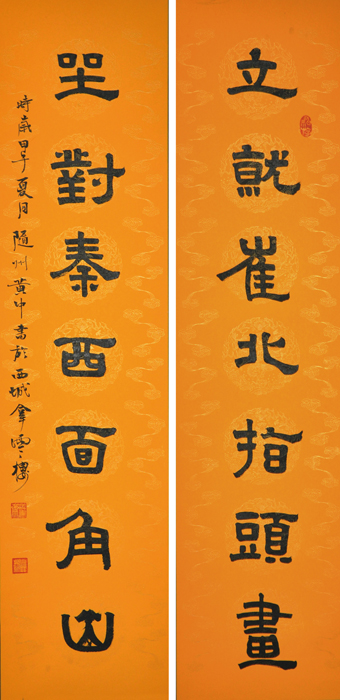 立就崔北指頭畫
坐對秦西面角山
時歲甲午夏月隨州黃中書於西城拿雲樓